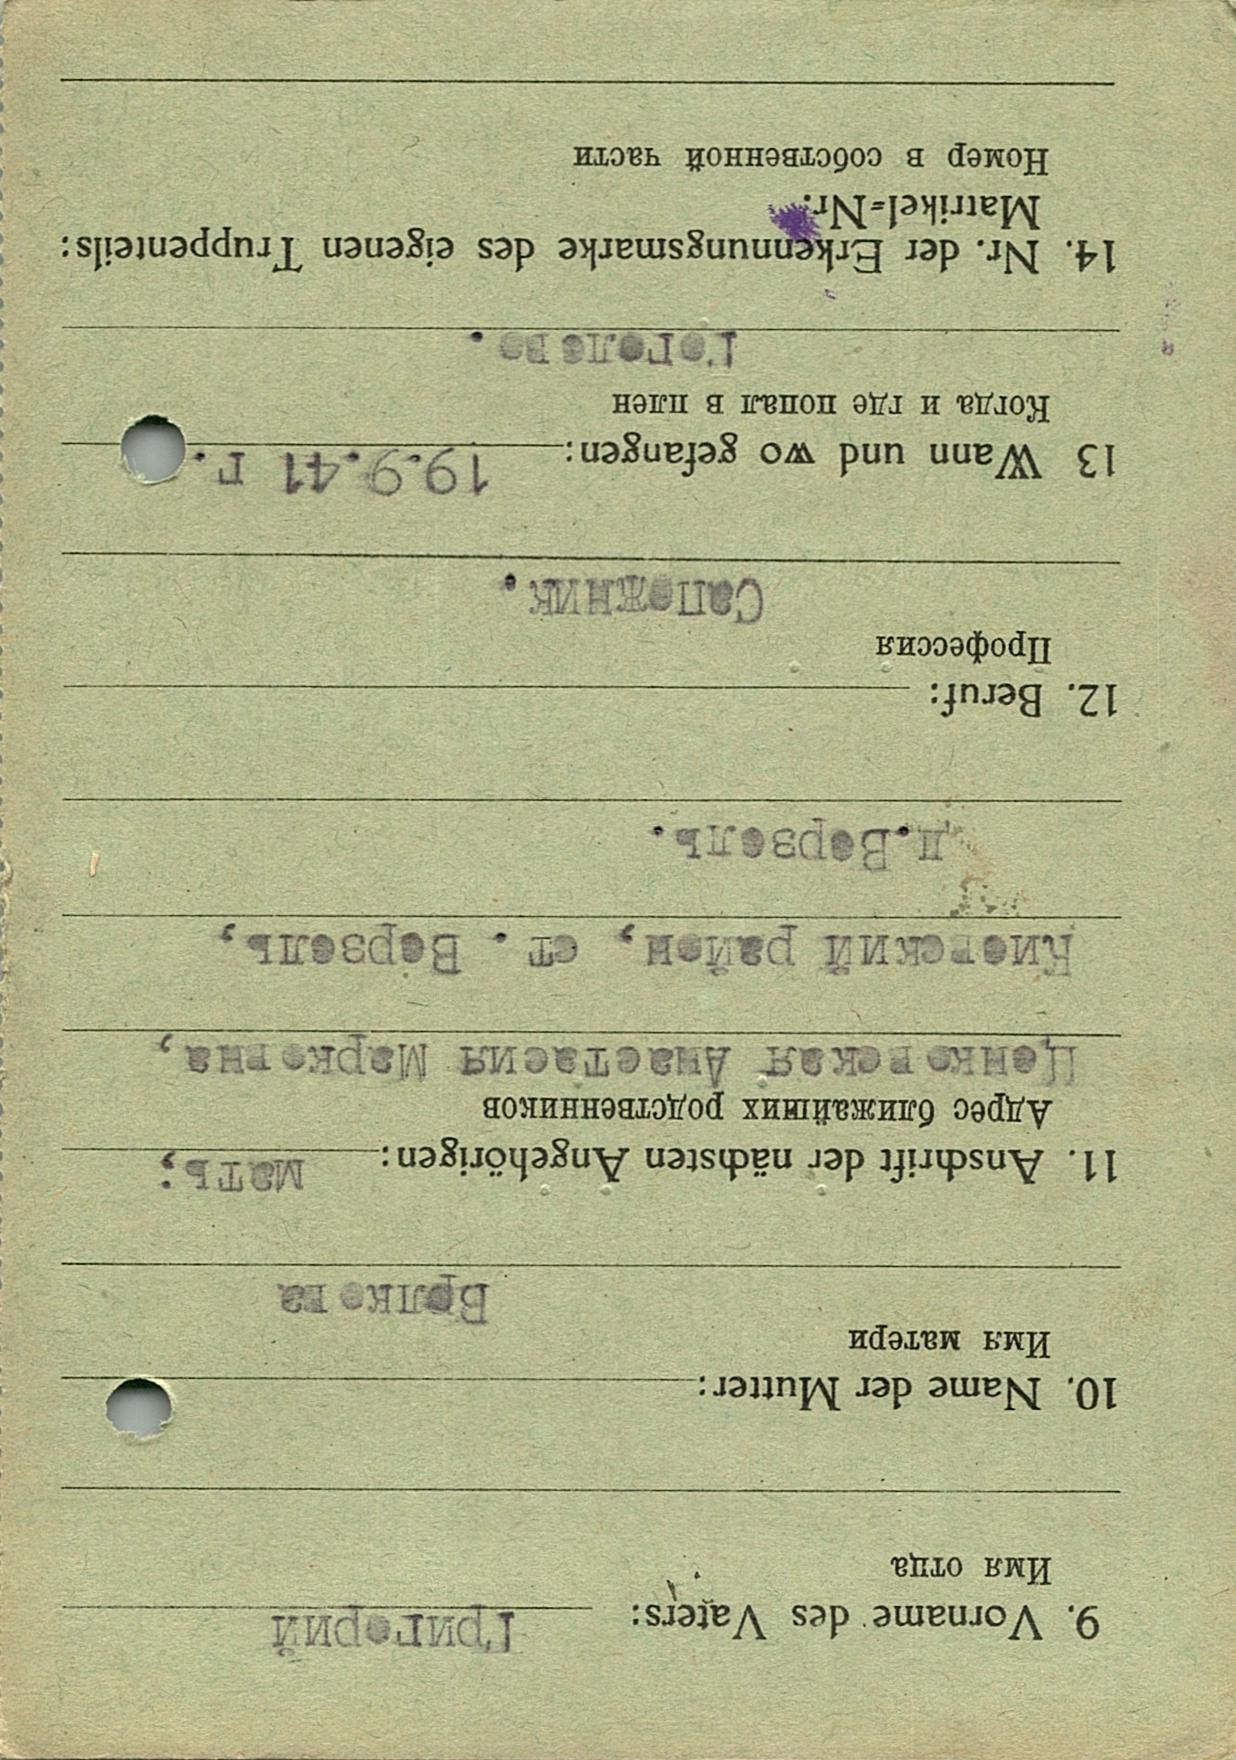 9. Vorname des Vaters: Григорий
Имя отца
10. Name der Mutter:
Имя матери
Волкова
11. Anschrift der nächsten Angehörigen: мать;
Адрес ближайших родственников
Ценковская Анастасия Марковна,
Киевский район, ст. Ворзель,
д.Ворзель.
12. Beruf:
Профессия
Сапожник.
13 Wann und wo gefangen: 19.9.41 г.
Когда и где попал в плен
Гоголево.
14. Nr. der Erkennungsmarke des eigenen Truppenteils:
Matrikel=Nr.
Номер в собственной части